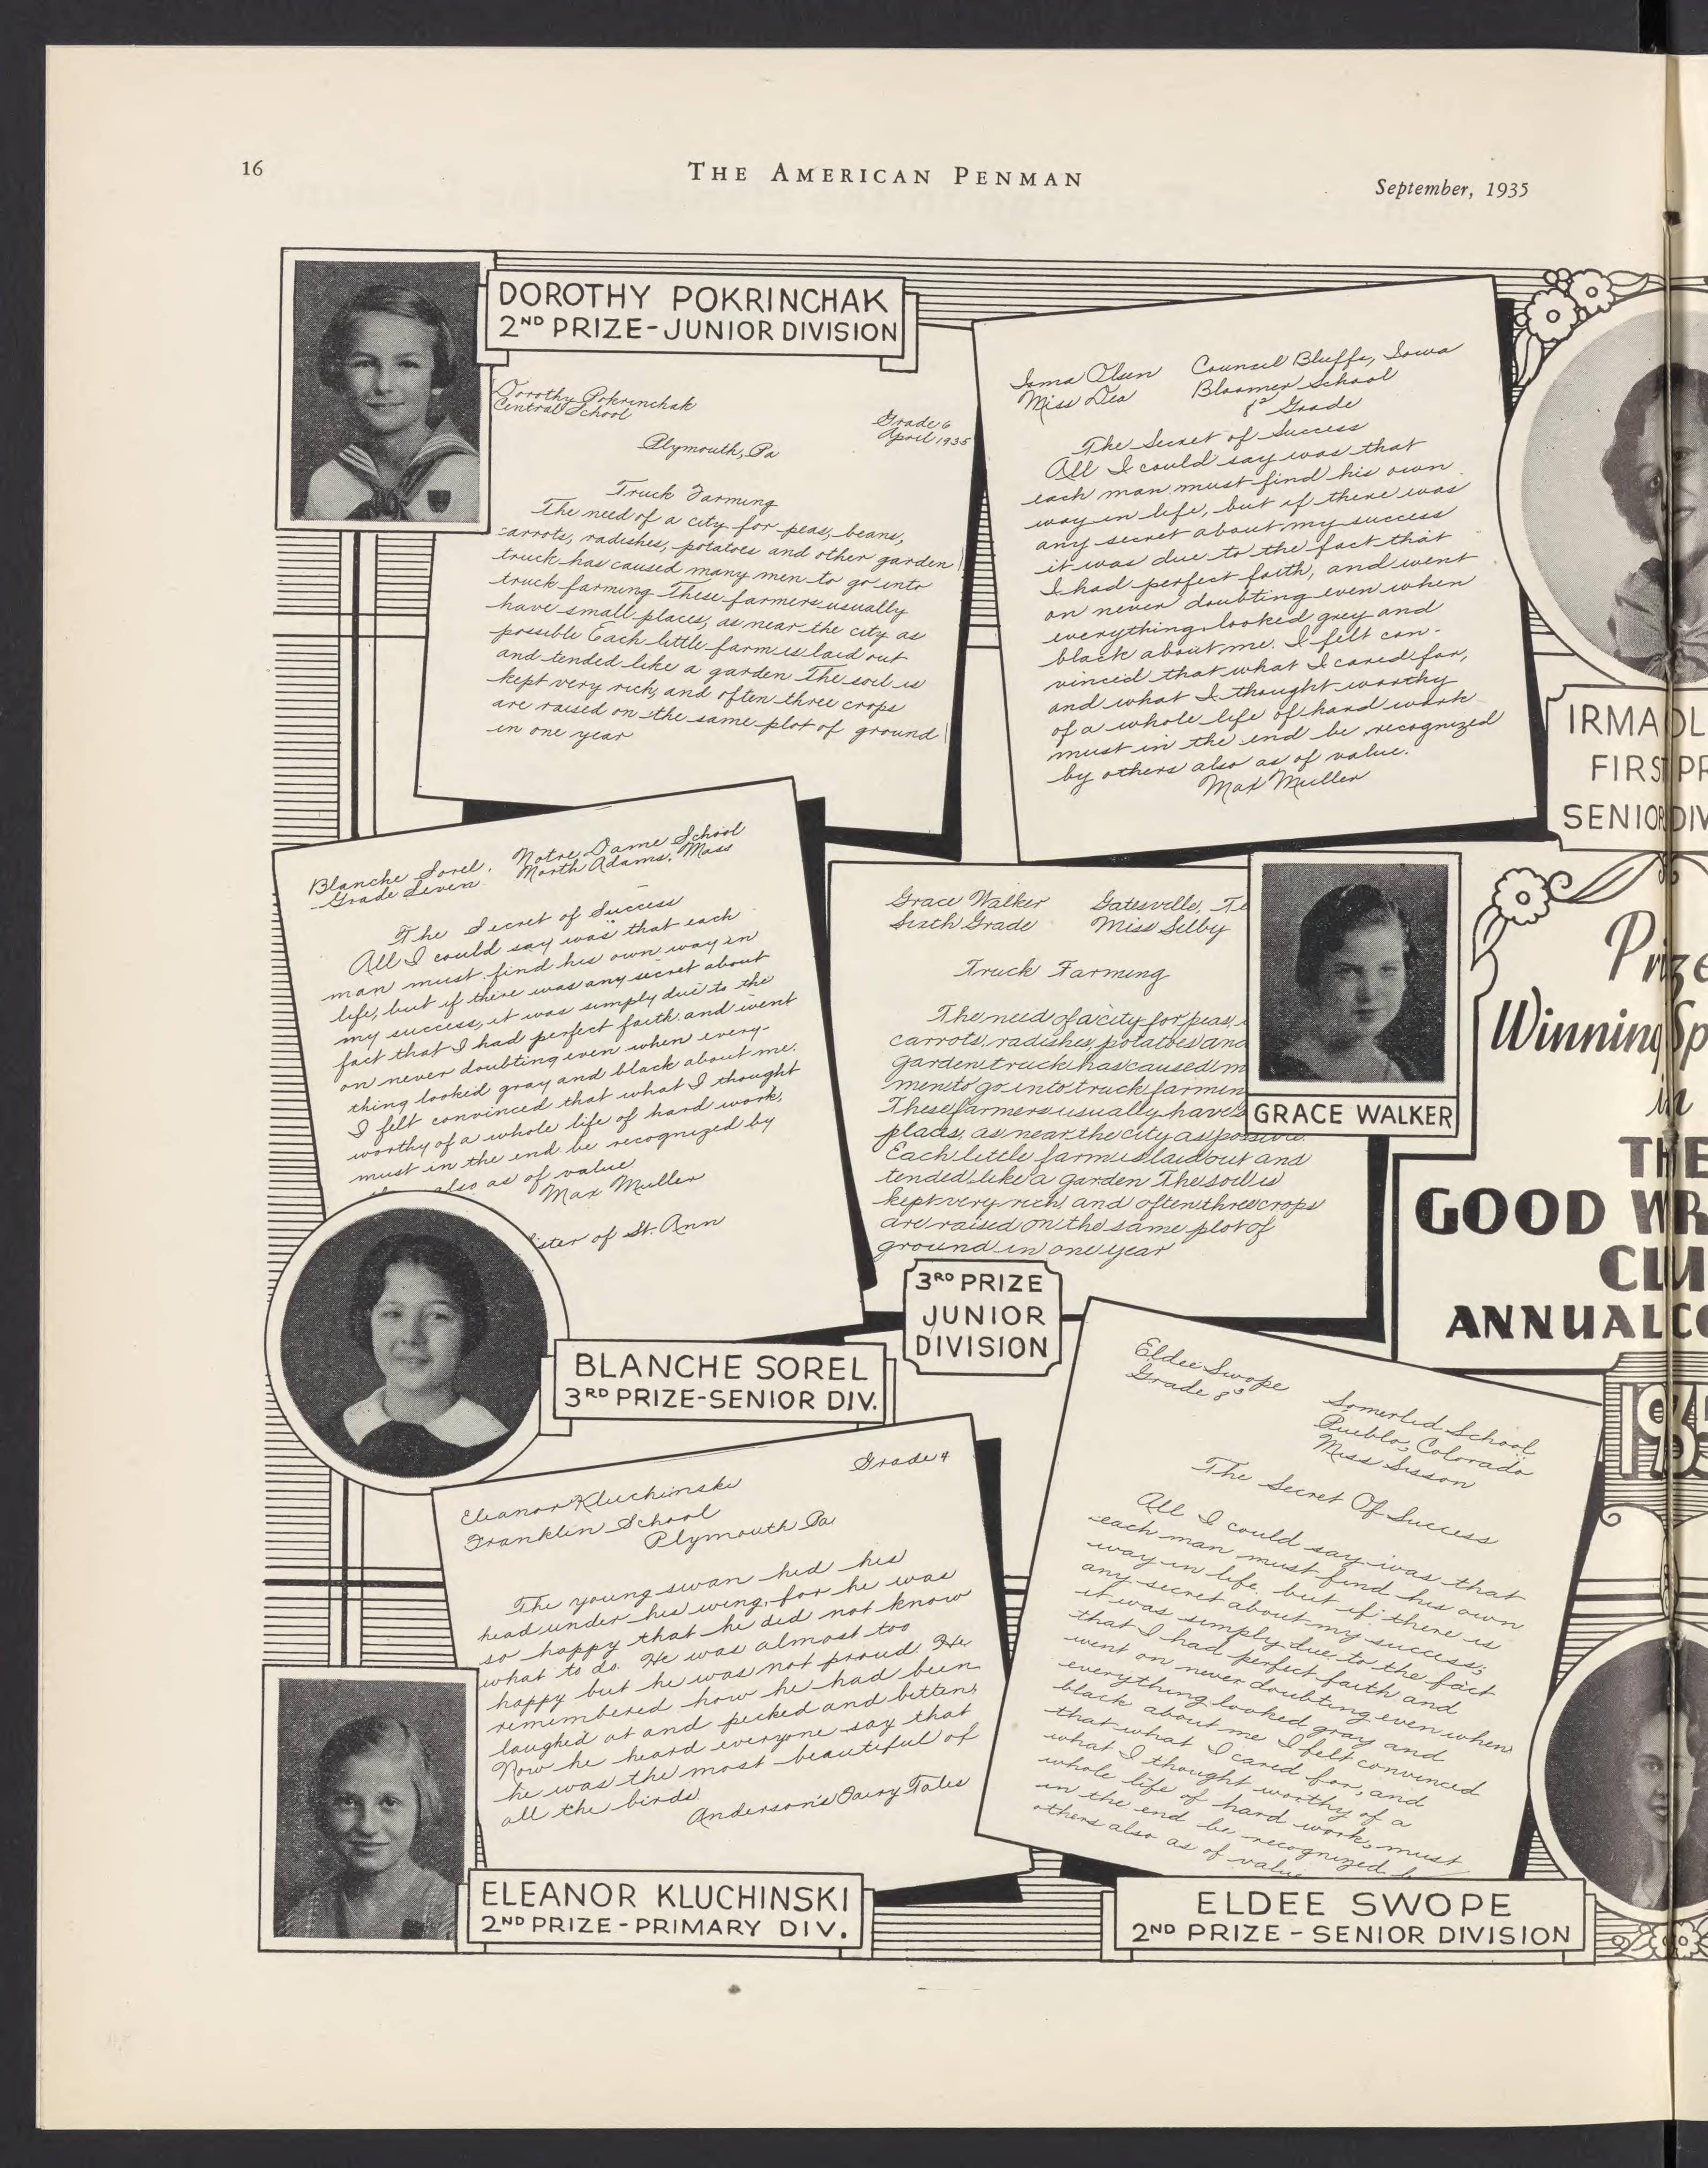 16
THE AMERICAN PENMAN
September, 1935
DOROTHY POKRINCHAK
2ND PRIZE-JUNIOR DIVISION
Dorothy Pokrinchak
Central School
Grade 6
April 1935
Plymouth, Pa
Truck Farming
The need of a city for peas, beans,
carrots, radishes, potatoes and other garden
truck has caused many men to go into
truck farming These farmers usually
have small places, as near the city as
possible Each little farm is laid out
and tended like a garden The soil is
kept very rich, and often three crops
are raised on the same plot of ground
in one year
Irma Olsen Council Bluffs, Iowa
Miss Dea Bloomer School
Grade
The Secret of Success
All I could say was that
each man must find his own
way in life, but if there was
any secret about my success
it was due to the fact that
I had perfect faith, and went
on never doubting even when
everything looked grey and
black about me. I felt con-
vinced that what I cared for,
and what I thought worthy
of a whole life of hard work
must in the end be recognized
by others also as of value.
Max Muller
IRMA OL
FIRST PR
SENIOR DIV
Blanche Sorel, Notre Dame School
Grade Seven North Adams, Mass
The Secret of Success
All I could say was that each
man must find his own way in
life, but if there was any secret about
my success, it was simply due to the
fact that I had perfect faith and went
on never doubting even when every-
thing looked gray and black about me.
I felt convinced that what I thought
worthy of a whole life of hard work,
must in the end be recognized by
also as of value
Max Muller
ister of St. Ann
BLANCHE SOREL
3RD PRIZE-SENIOR DIV.
Grace Walker Gatesville, Te
Sixth Grade Miss Selby
Truck Farming
The need of a city for peas,
carrots, radishes, potatoes and
garden truck has caused m
men to go into truck farmin
These farmers usually have s
places, as near the city as possible
Each little farm is laid out and
tended like a garden The soil is
kept very rich, and often three crops
are raised on the same plot of
ground in one year
GRACE WALKER
3RD PRIZE
JUNIOR
DIVISION
Prize
Winning Sp
in
THE
GOOD WR
CLU
ANNUAL CO
1935
Eldee Swope
Grade 8
Somerlid School
Pueblo, Colorado
Miss Sisson
The Secret Of Success
All I could say was that
each man must find his own
way in life, but if there is
any secret about my success;
it was simply due to the fact
that I had perfect faith and
went on never doubting even when
everything looked gray and
black about me I felt convinced
that what I cared for, and
what I thought worthy of a
whole life of hard work, must
in the end be recognized b
others also as of value
ELDEE SWOPE
2ND PRIZE - SENIOR DIVISION
Grade 4
Eleanor Kluchinski
Franklin School
Plymouth Pa.
The young swan hid his
head under his wing, for he was
so happy that he did not know
what to do. He was almost too
happy but he was not proud. He
remembered how he had been
laughed at and pecked and bitten,
Now he heard everyone say that
he was the most beautiful of
all the birds
Anderson's Fairy Tales
ELEANOR KLUCHINSKI
2ND PRIZE - PRIMARY DIV.